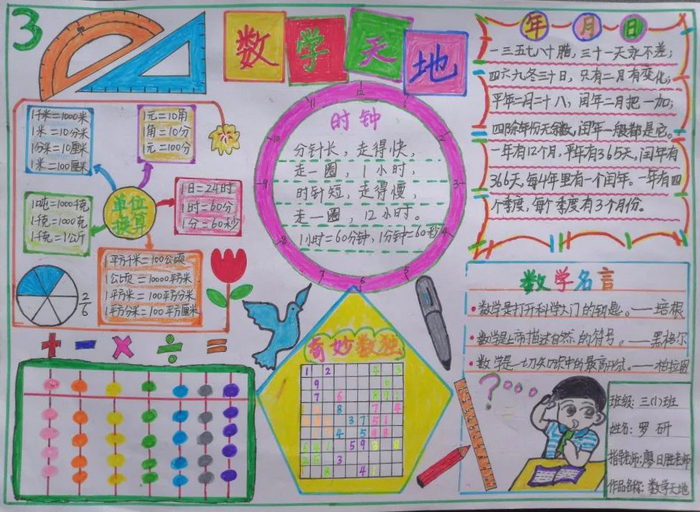 3
数学天地
1千米=1000米
1米=10分米
1分米=10厘米
1米=100厘米
1元=10角
1角=10分
1元=100分
单位
换算
1日=24时
1时=60分
1分=60秒
1吨=1000千克
1千克=1000克
1千克=1公斤
1平方千米=100公顷
1公顷=10000平方米
1平方米=100平方分米
1平方分米=100平方厘米
2/6
时钟
分针长，走得快，
走一圈，1小时；
时针短，走得慢，
走一圈，12小时。
1小时=60分钟，1分钟=60秒
年月日
一三五七八十腊，三十一天永不差；
四六九冬三十日，只有二月有变化；
平年二月二十八，闰年二月把一加；
四除年份无余数，闰年一般都是它。
一年有12个月，平年有365天，闰年有
366天，每4年里有一个闰年。一年有四
个季度，每个季度有3个月份。
数学名言
数学是打开科学大门的钥匙。——培根
——柏拉图
+ - × ÷ =
奇妙数独
?
班级：三(1)班
姓名：罗研
作品名称：数学天地